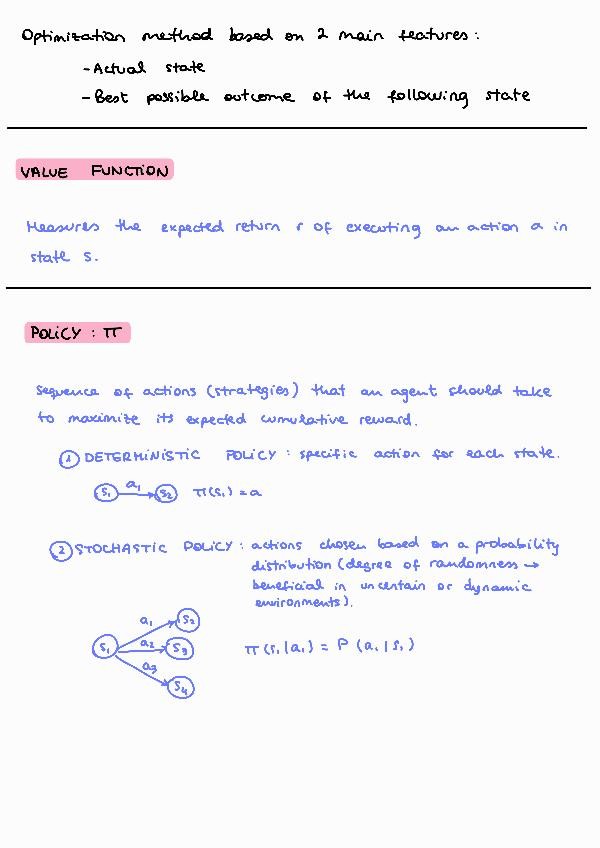 Optimization method based on 2 main features:
- Actual state
- Best possible outcome of the following state
VALUE FUNCTION
Measures the expected return r of executing an action a in
state s.
POLICY : π
Sequence of actions (strategies) that an agent should take
to maximize its expected cumulative reward.
① DETERMINISTIC POLICY : specific action for each state.
S₁ a₁ S₂ π(s₁) = a
② STOCHASTIC POLICY : actions chosen based on a probability
distribution (degree of randomness →
beneficial in uncertain or dynamic
environments).
a₁ S₂
S₁ a₂ S₃ π(s₁|a₁) = P(a₁|s₁)
a₃ S₄